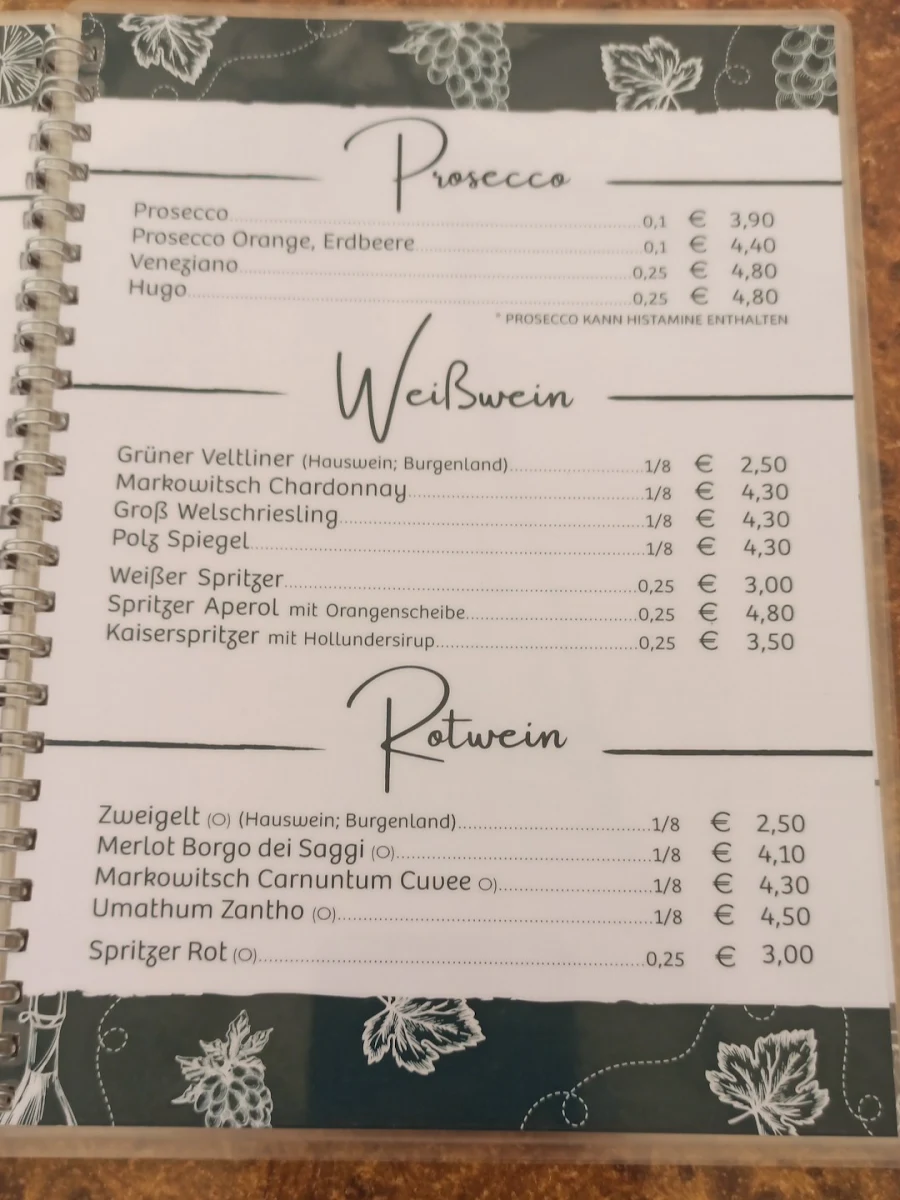 Prosecco
Prosecco 0,1 € 3,90
Prosecco Orange, Erdbeere 0,1 € 4,40
Veneziano 0,25 € 4,80
Hugo 0,25 € 4,80
* PROSECCO KANN HISTAMINE ENTHALTEN
Weißwein
Grüner Veltliner (Hauswein; Burgenland) 1/8 € 2,50
Markowitsch Chardonnay 1/8 € 4,30
Groß Welschriesling 1/8 € 4,30
Polz Spiegel 1/8 € 4,30
Weißer Spritzer 0,25 € 3,00
Spritzer Aperol mit Orangenscheibe 0,25 € 4,80
Kaiserspritzer mit Hollundersirup 0,25 € 3,50
Rotwein
Zweigelt (O) (Hauswein; Burgenland) 1/8 € 2,50
Merlot Borgo dei Saggi (O) 1/8 € 4,10
Markowitsch Carnuntum Cuvee O) 1/8 € 4,30
Umathum Zantho (O) 1/8 € 4,50
Spritzer Rot (O) 0,25 € 3,00